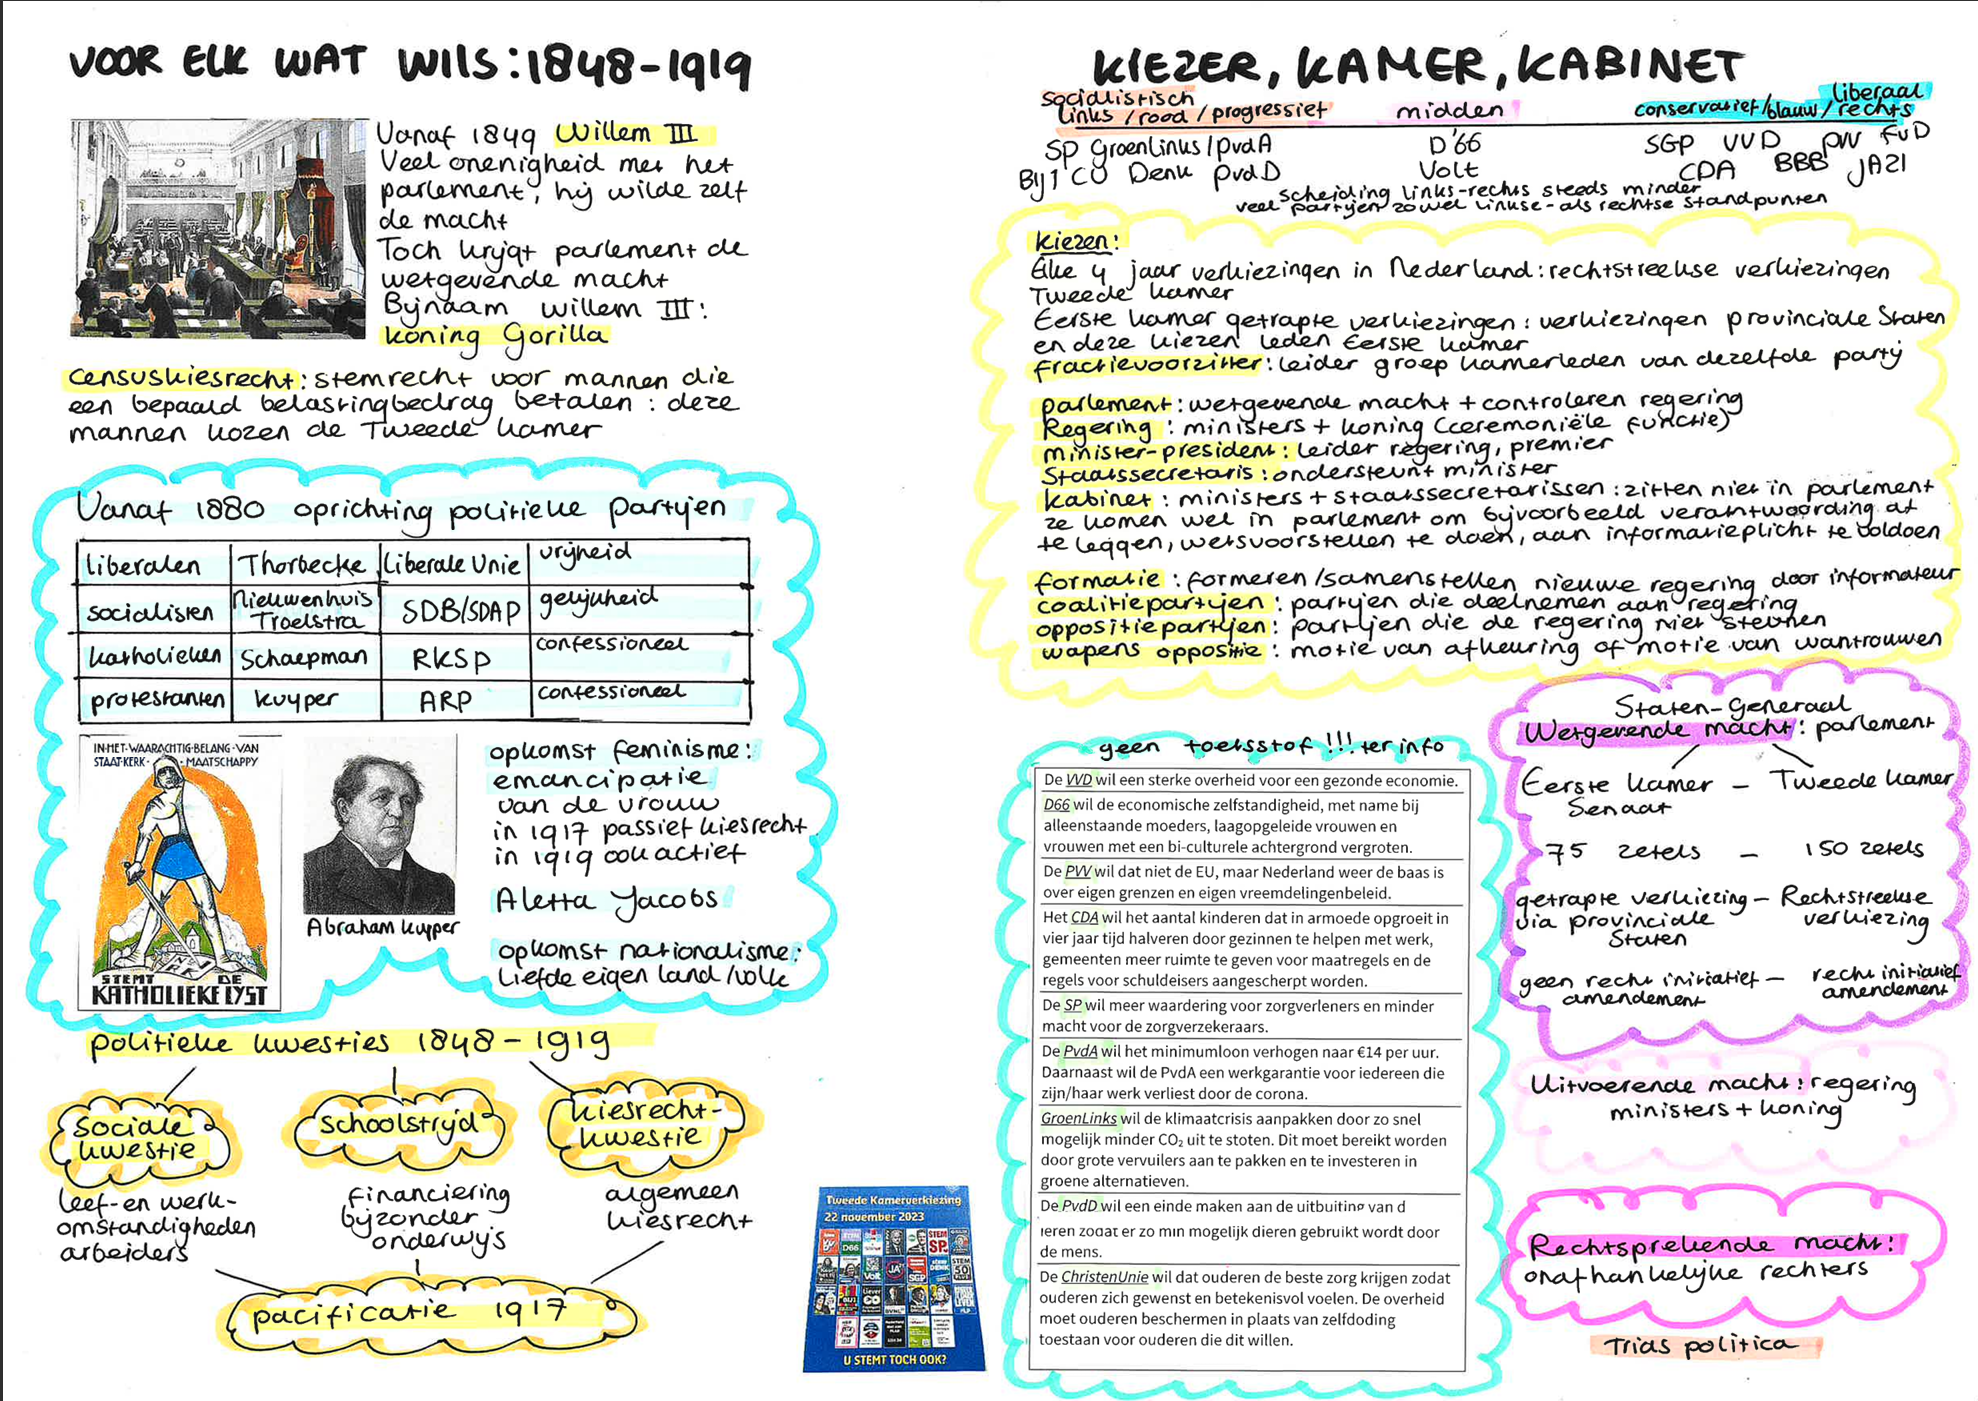 VOOR ELK WAT WILS: 1848-1919
Vanaf 1849 Willem III
Veel onenigheid met het
parlement, hij wilde zelf
de macht
Toch krijgt parlement de
wetgevende macht
Bijnaam Willem III:
koning Gorilla
Censuskiesrecht: stemrecht voor mannen die
een bepaald belastingbedrag betalen: deze
mannen kozen de Tweede Kamer
Vanaf 1880 oprichting politieke partijen
liberalen Thorbecke Liberale Unie vrijheid
socialisten Nieuwenhuis Troelstra SDB/SDAP gelijkheid
katholieken Schaepman RKSP confessioneel
protestanten Kuyper ARP confessioneel
IN·HET·WAARACHTIG·BELANG·VAN
STAAT·KERK· ·MAATSCHAPPY
STEMT DE
KATHOLIEKE LYST
Abraham Kuyper
opkomst feminisme:
emancipatie
van de vrouw
in 1917 passief kiesrecht
in 1919 ook actief
Aletta Jacobs
opkomst nationalisme:
liefde eigen land/volk
politieke kwesties 1848-1919
sociale
kwestie
schoolstrijd
kiesrecht-
kwestie
leef- en werk-
omstandigheden
arbeiders
financiering
bijzonder
onderwijs
algemeen
kiesrecht
pacificatie 1917
KIEZER, KAMER, KABINET
socialistisch
links/rood/progressief midden conservatief/blauw/rechts
liberaal
SP Groenlinks/PvdA D'66 SGP VVD PVV FvD
Bij1 CU Denk PvdD Volt CDA BBB JA21
scheiding links-rechts steeds minder
veel partijen zowel linkse- als rechtse standpunten
kiezen:
Elke 4 jaar verkiezingen in Nederland: rechtstreekse verkiezingen
Tweede Kamer
Eerste Kamer getrapte verkiezingen: verkiezingen provinciale Staten
en deze kiezen leden Eerste Kamer
fractievoorzitter: leider groep kamerleden van dezelfde partij
parlement: wetgevende macht + controleren regering
Regering: ministers + koning (ceremoniële functie)
minister-president: leider regering, premier
Staatssecretaris: ondersteunt minister
Kabinet: ministers + staatssecretarissen: zitten niet in parlement
ze komen wel in parlement om bijvoorbeeld verantwoording af
te leggen, wetsvoorstellen te doen, aan informatieplicht te voldoen
formatie: formeren/samenstellen nieuwe regering door informateur
coalitiepartijen: partijen die deelnemen aan regering
oppositiepartijen: partijen die de regering niet steunen
wapens oppositie: motie van afkeuring of motie van wantrouwen
geen toetsstof!!! ter info
De VVD wil een sterke overheid voor een gezonde economie.
D66 wil de economische zelfstandigheid, met name bij
alleenstaande moeders, laagopgeleide vrouwen en
vrouwen met een bi-culturele achtergrond vergroten.
De PVV wil dat niet de EU, maar Nederland weer de baas is
over eigen grenzen en eigen vreemdelingenbeleid.
Het CDA wil het aantal kinderen dat in armoede opgroeit in
vier jaar tijd halveren door gezinnen te helpen met werk,
gemeenten meer ruimte te geven voor maatregels en de
regels voor schuldeisers aangescherpt worden.
De SP wil meer waardering voor zorgverleners en minder
macht voor de zorgverzekeraars.
De PvdA wil het minimumloon verhogen naar €14 per uur.
Daarnaast wil de PvdA een werkgarantie voor iedereen die
zijn/haar werk verliest door de corona.
GroenLinks wil de klimaatcrisis aanpakken door zo snel
mogelijk minder CO₂ uit te stoten. Dit moet bereikt worden
door grote vervuilers aan te pakken en te investeren in
groene alternatieven.
De PvdD wil een einde maken aan de uitbuiting van d
ieren zodat er zo min mogelijk dieren gebruikt wordt door
de mens.
De ChristenUnie wil dat ouderen de beste zorg krijgen zodat
ouderen zich gewenst en betekenisvol voelen. De overheid
moet ouderen beschermen in plaats van zelfdoding
toestaan voor ouderen die dit willen.
Tweede Kamerverkiezing
22 november 2023
D66
STEM
SP.
Volt
JA21
SGP
DENK
STEM
50
BIJ1
U STEMT TOCH OOK?
Staten-Generaal
Wetgevende macht: parlement
Eerste Kamer - Tweede Kamer
Senaat
75 zetels - 150 zetels
getrapte verkiezing - Rechtstreekse
via provinciale verkiezing
Staten
geen recht initiatief - recht initiatief
amendement amendement
Uitvoerende macht: regering
ministers + koning
Rechtsprekende macht:
onafhankelijke rechters
Trias politica